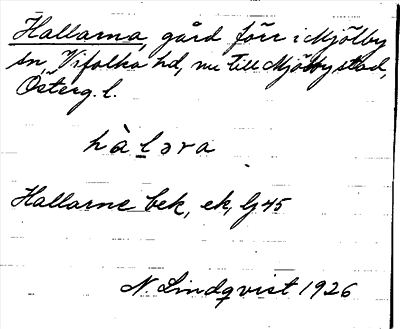 Hallarna, gård förr i Mjölby
sn, Vifolka hd, nu till Mjölby stad,
Österg. l.
hàlǝra
Hallarne bek, ek, Gj 45
N. Lindqvist 1926